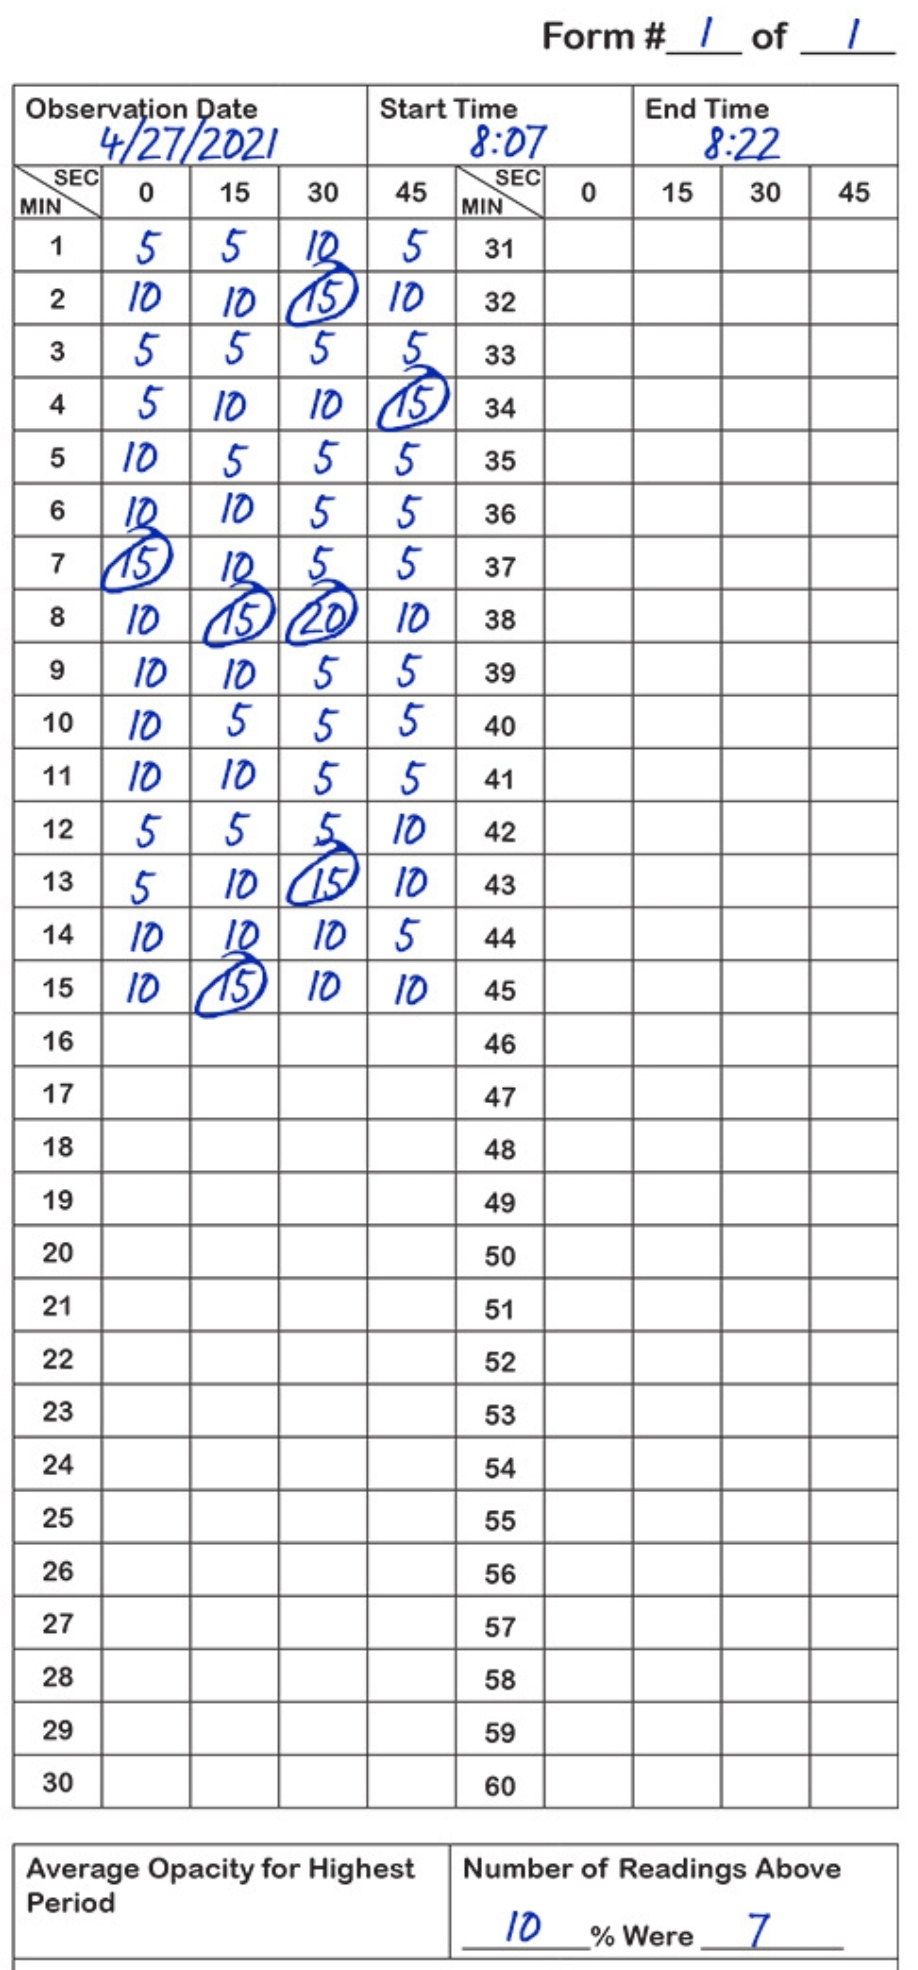 Form # 1 of 1
Observation Date Start Time End Time
4/27/2021 8:07 8:22
SEC MIN 0 15 30 45 SEC MIN 0 15 30 45
1 5 5 10 5 31
2 10 10 15 10 32
3 5 5 5 5 33
4 5 10 10 15 34
5 10 5 5 5 35
6 10 10 5 5 36
7 15 10 5 5 37
8 10 15 20 10 38
9 10 10 5 5 39
10 10 5 5 5 40
11 10 10 5 5 41
12 5 5 5 10 42
13 5 10 15 10 43
14 10 10 10 5 44
15 10 15 10 10 45
16 46
17 47
18 48
19 49
20 50
21 51
22 52
23 53
24 54
25 55
26 56
27 57
28 58
29 59
30 60
Average Opacity for Highest Number of Readings Above
Period
10 % Were 7